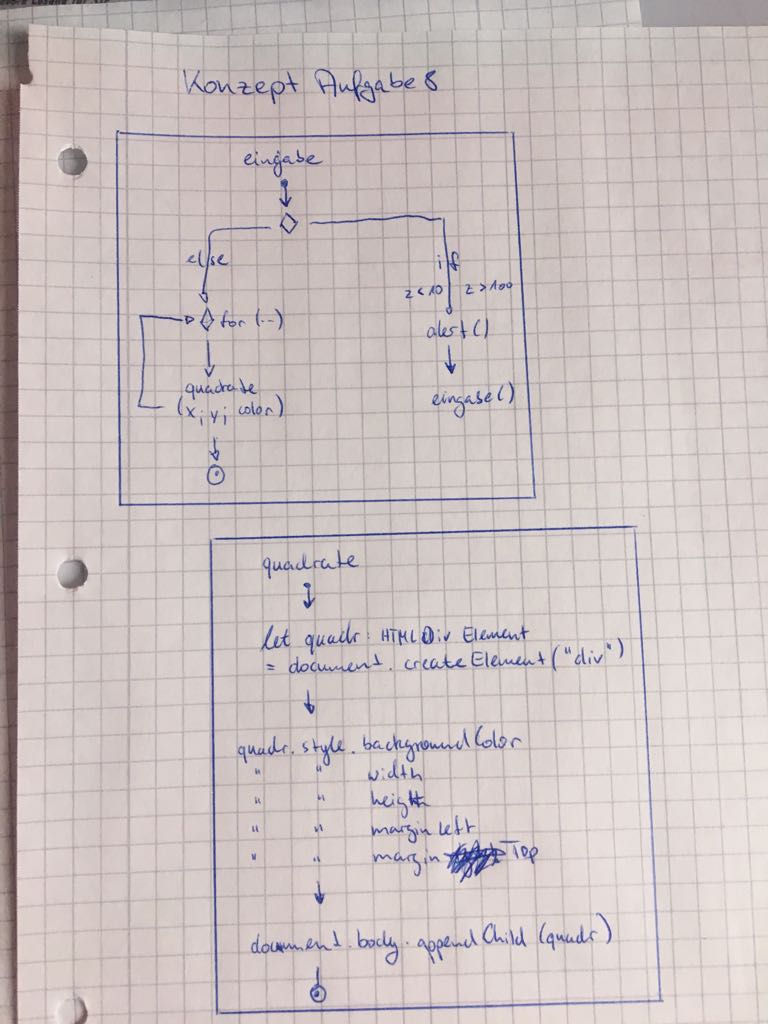 Konzept Aufgabe 8
eingabe
else
if
z < 10 z > 100
for (...)
alert()
quadrate
(x; y; color)
eingabe()
quadrate
let quadr : HTMLDivElement
= document.createElement("div")
quadr.style.backgroundColor
" " width
" " height
" " margin Left
" " margin Top
document.body.appendChild (quadr)